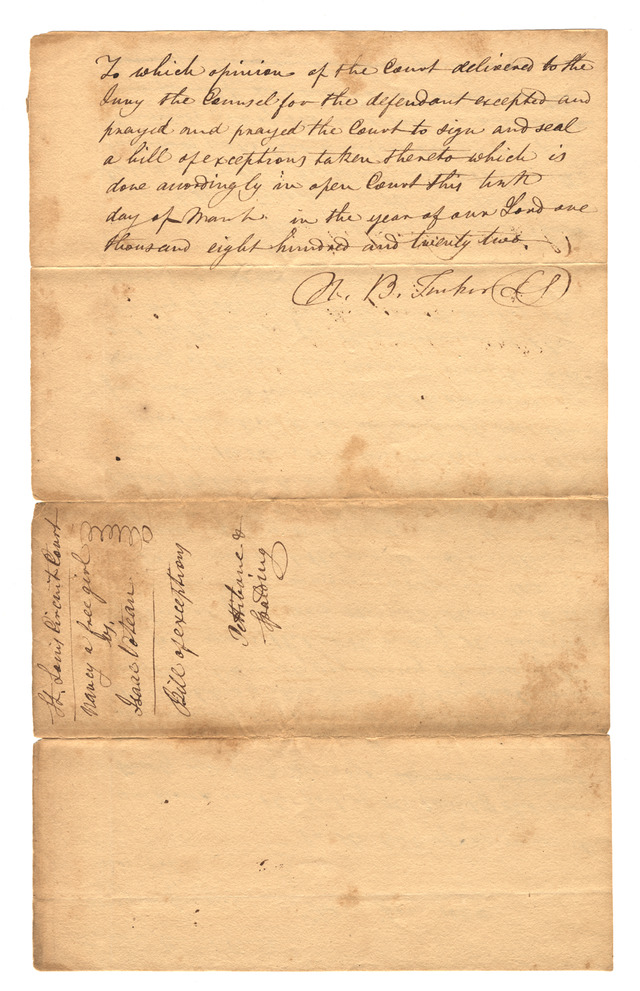 To which opinion of the Court delivered to the
Jury the Counsel for the defendant excepted and
prayed and prayed the Court to sign and seal
a bill of exceptions taken thereto which is
done accordingly in open Court this tenth
day of March in the year of our Lord one
thousand eight hundred and twenty two.
N. B. Tucker (LS)
St. Louis Circuit Court
Nancy a free girl
vs.
Isaac Voteau
Bill of exceptions
Pettibone &
Spalding